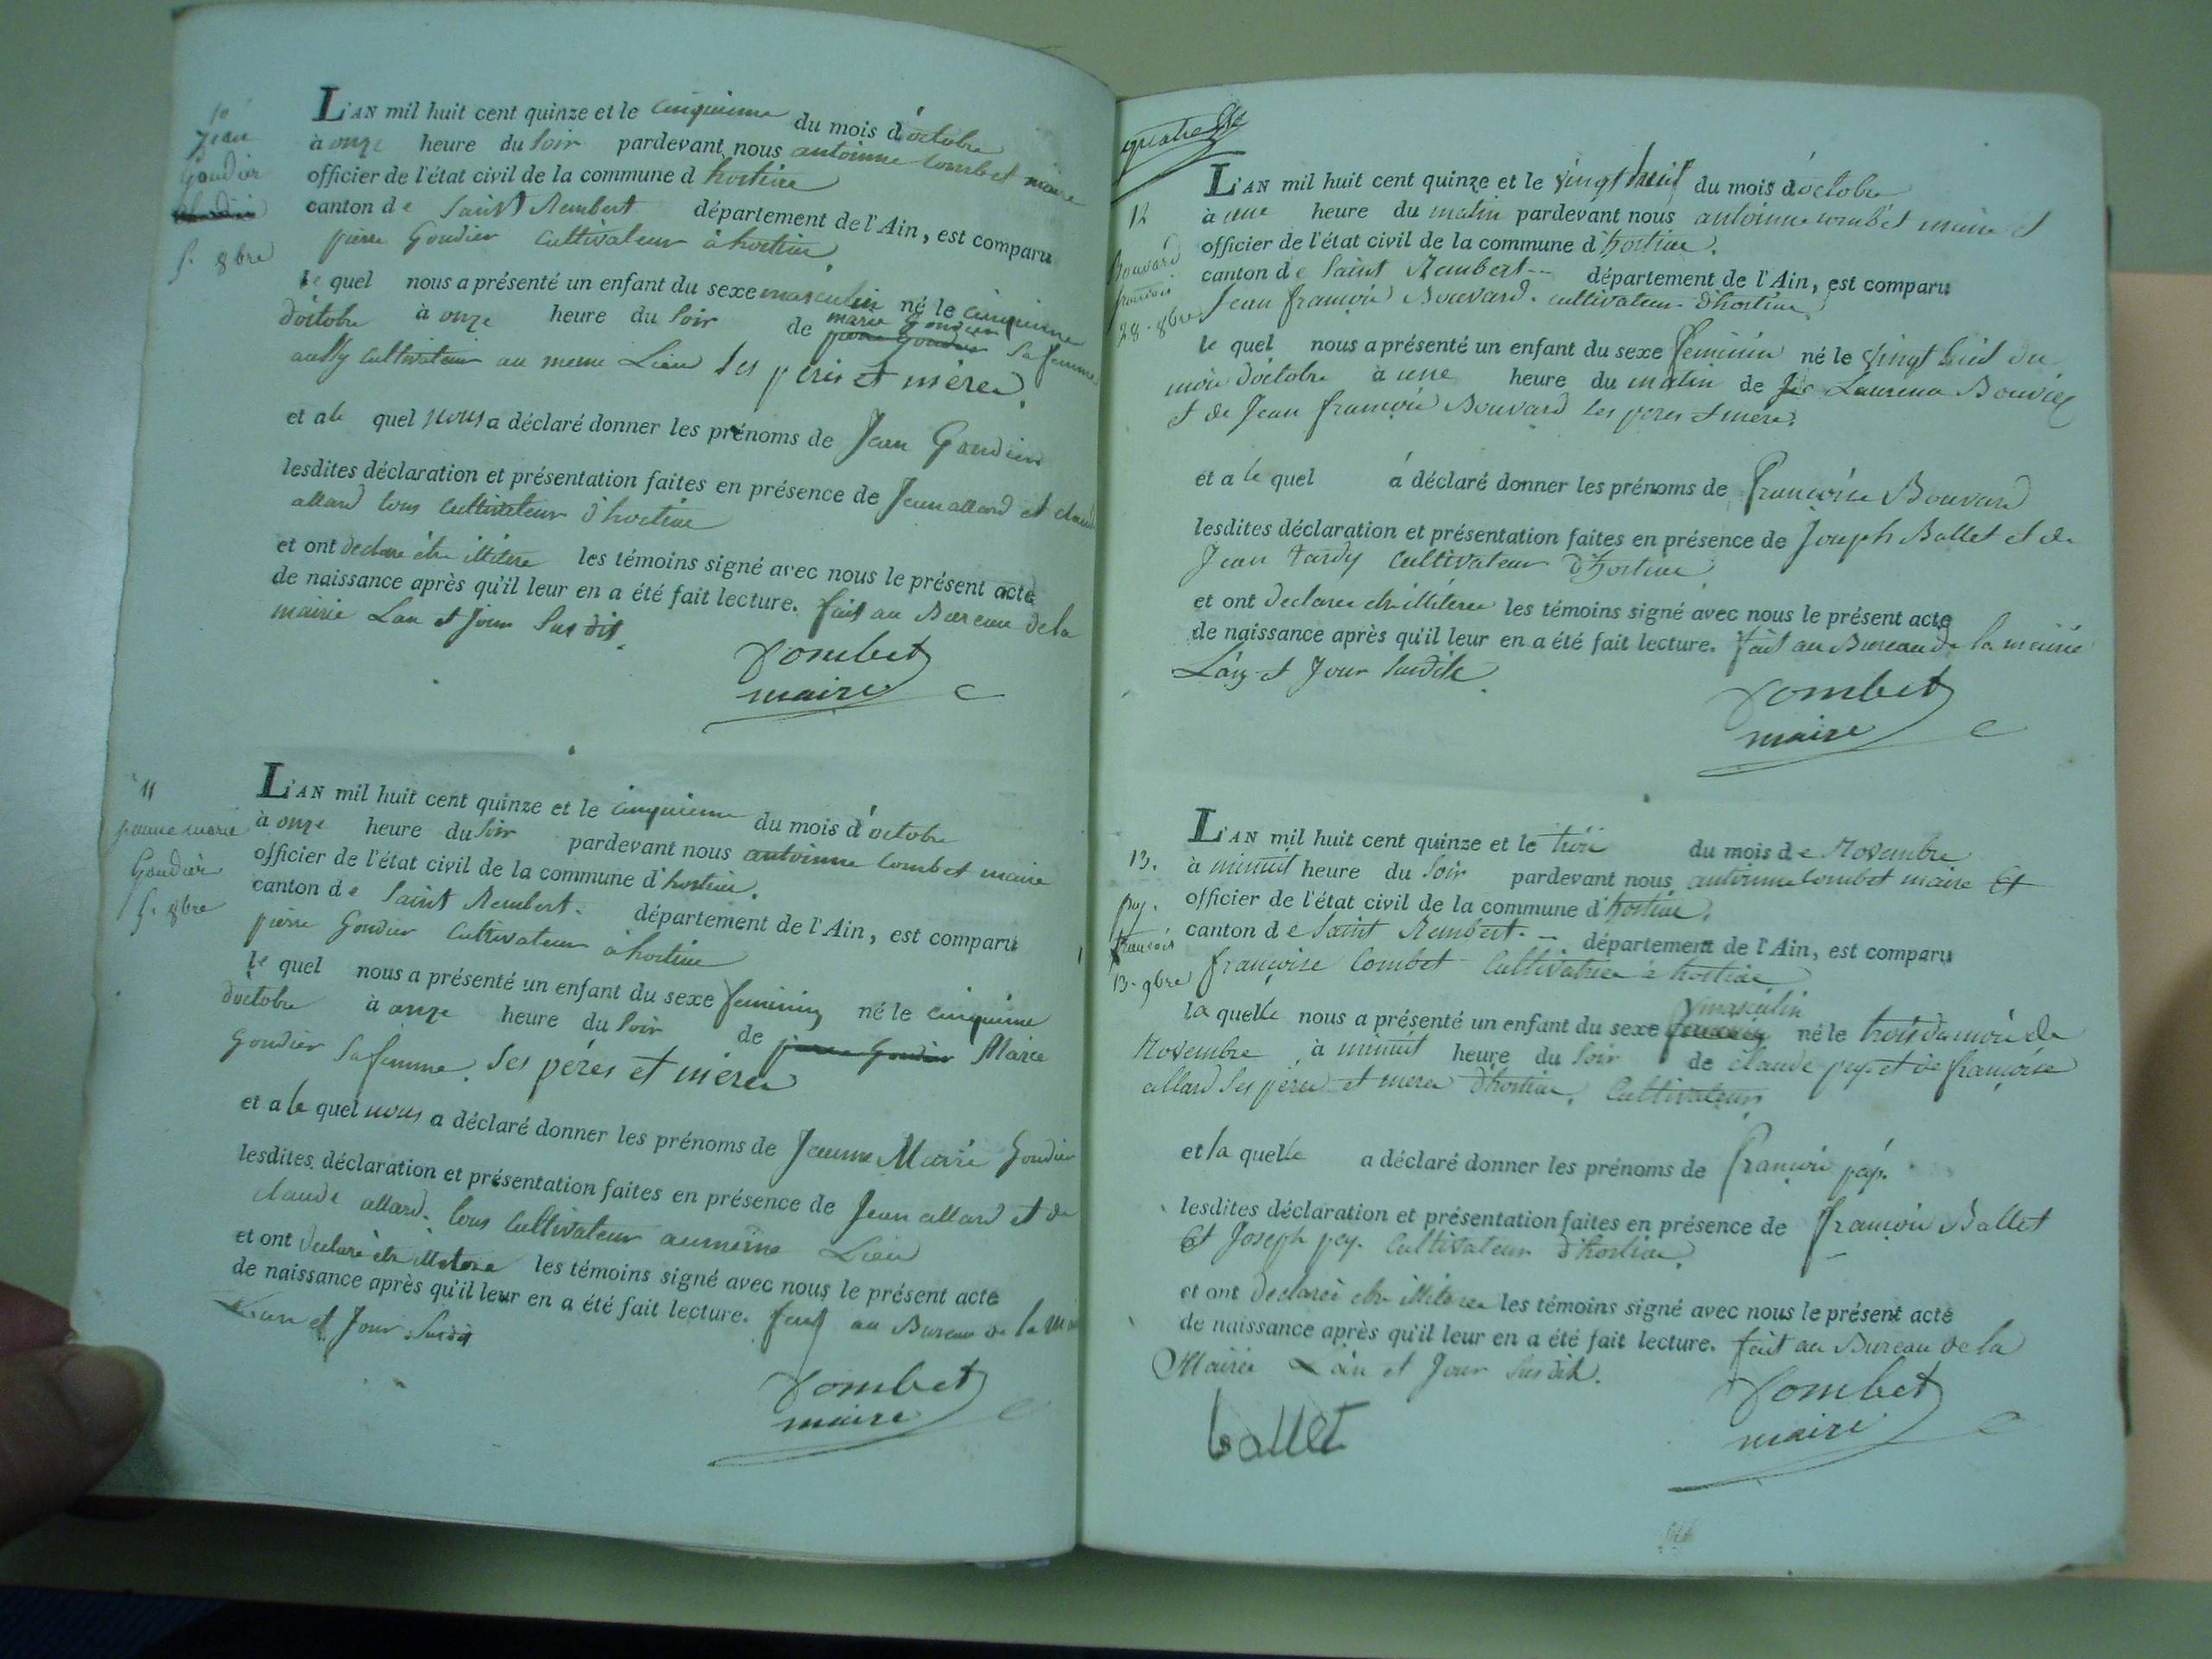 10
Jean
Goudier
5. 8bre
L'AN mil huit cent quinze et le cinquieme du mois d'octobre
à onze heure du soir pardevant nous antoinne Combet maire
officier de l'état civil de la commune d hostiae
canton de Saint Rembert département de l'Ain, est comparu
pierre Goudier cultivateur à hostiae
le quel nous a présenté un enfant du sexe masculin né le cinquieme
d'octobre à onze heure du soir de marie Goudier sa femme
aussy cultivateur au meme Lieu ses péres et mérea
et a le quel nous a déclaré donner les prénoms de Jean Goudier
lesdites déclaration et présentation faites en présence de Jean allard et claude
allard tous cultivateur d'hostiae
et ont declare étre illitere les témoins signé avec nous le présent acte
de naissance après qu'il leur en a été fait lecture. fait au Bureau de la
mairie Lan et Jour Sus dit.
Combet
maire
11
jeanne marie
Goudier
5. 8bre
L'AN mil huit cent quinze et le cinquieme du mois d'octobre
à onze heure du soir pardevant nous antoinne Combet maire
officier de l'état civil de la commune d'hostiae.
canton de Saint Rembert. département de l'Ain, est comparu
pierre Goudier cultivateur à hostiae
le quel nous a présenté un enfant du sexe feminin né le cinquieme
d'octobre à onze heure du soir de pierre Goudier Marie
Goudier sa femme. ses péres et mérea
et a le quel nous a déclaré donner les prénoms de Jeanne Marie Goudier
lesdites déclaration et présentation faites en présence de Jean allard et de
claude allard. tous cultivateur au méme Lieu
et ont declaré étre illitere les témoins signé avec nous le présent acte
de naissance après qu'il leur en a été fait lecture. fait au Bureau de la
Lan et Jour Susdit
Combet
maire
quatre
12
Bouvard
francois
28. 8bre
L'AN mil huit cent quinze et le vingt huit du mois d'octobre
à une heure du matin pardevant nous antoinne combet maire et
officier de l'état civil de la commune d'hostiae.
canton de Saint Rembert-- département de l'Ain, est comparu
Jean francois Bouvard. cultivateur d'hostiae
le quel nous a présenté un enfant du sexe feminin né le vingt huit du
mois doctobre à une heure du matin de Laurena
et de Jean francois Bouvard ses peres et mere.
et a le quel á déclaré donner les prénoms de Francoise Bouvard
lesdites déclaration et présentation faites en présence de Joseph Ballet et de
Jean tardy cultivateur d'hostiae
et ont declarer etre illiterer les témoins signé avec nous le présent acte
de naissance après qu'il leur en a été fait lecture. fait au Bureau de la mairie
L'an et Jour Susdit
Combet
maire
13.
pey.
francois
13. 9bre
L'AN mil huit cent quinze et le trois du mois de Novembre
à minuit heure du Soir pardevant nous antoinne Combet maire Et
officier de l'état civil de la commune d'hostiae.
canton de Saint Rembert.-- département de l'Ain, est comparu
françoise Combet Cultivatrice à hostiae
la quelle nous a présenté un enfant du sexe masculin né le trois du mois de
Novembre à minuit heure du Soir de claude pey. et de françoise
allard ses pére et mere d'hostiae. Cultivateurs
et la quelle a déclaré donner les prénoms de francois péy.
lesdites déclaration et présentation faites en présence de francois Ballet
Et Joseph pey. Cultivateur d'hostiae.
et ont declarée etre illiterer les témoins signé avec nous le présent acte
de naissance après qu'il leur en a été fait lecture. fait au Bureau de la
Mairie L'an et Jour Susdit.
ballet
Combet
maire